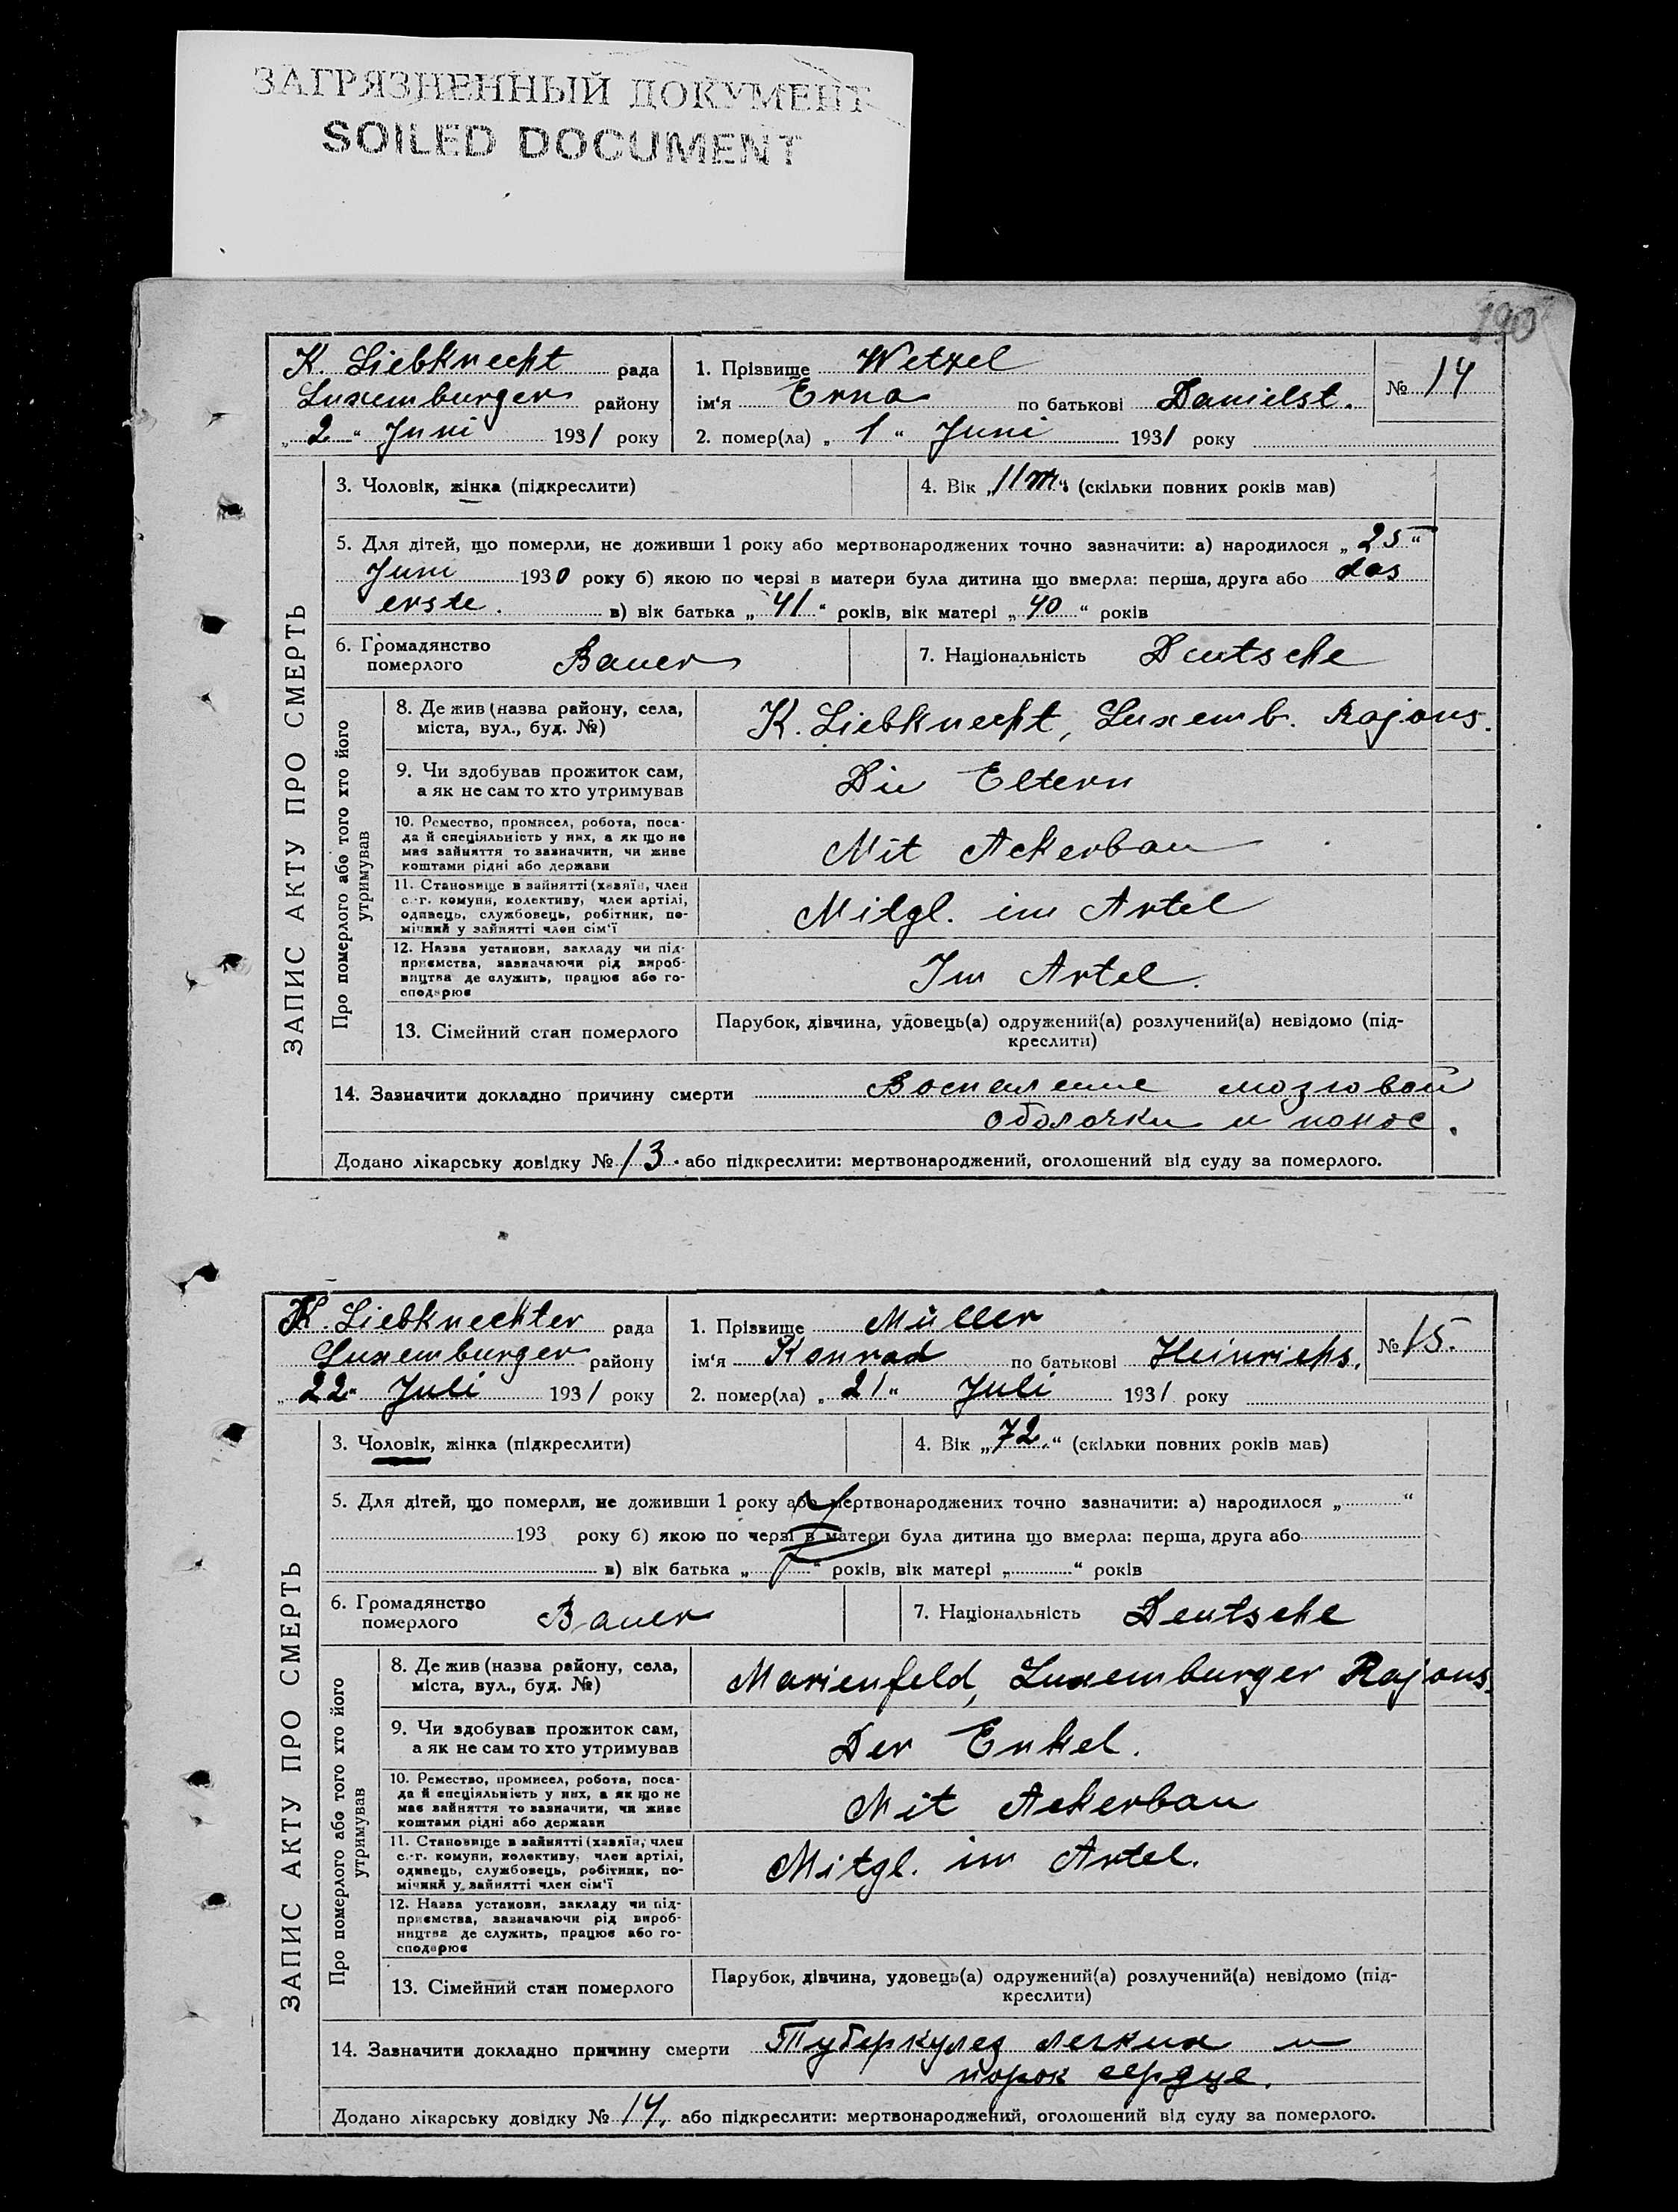 ЗАГРЯЗНЕННЫЙ ДОКУМЕНТ
SOILED DOCUMENT
190
K. Liebknecht рада
Luxemburger району
„ 2 “ Juni 1931 року
1. Прізвище Wetzel
ім'я Erna по батькові Danielst.
2. помер(ла) „ 1 “ Juni 1931 року
№ 14
ЗАПИС АКТУ ПРО СМЕРТЬ
3. Чоловік, жінка (підкреслити)
4. Вік „11 m.“ (скільки повних років мав)
5. Для дітей, що померли, не доживши 1 року або мертвонароджених точно зазначити: а) народилося „ 25 “
Juni 1930 року б) якою по черзі в матери була дитина що вмерла: перша, друга або das
erste. в) вік батька „ 41 “ років, вік матері „ 40 “ років
6. Громадянство
померлого
Bauer
7. Національність Deutsche
Про померлого або того хто його
утримував
8. Де жив (назва району, села,
міста, вул., буд. №)
K. Liebknecht, Luxemb. Rajons.
9. Чи здобував прожиток сам,
а як не сам то хто утримував
Die Eltern
10. Ремество, промисел, робота, поса-
да й спеціяльність у них, а як що не
має зайняття то зазначити, чи живе
коштами рідні або держави
Mit Ackerbau
11. Становище в зайнятті (хазяїн, член
с.-г. комуни, колективу, член артілі,
одинець, службовець, робітник, по-
мічний у зайнятті член сім'ї
Mitgl. im Artel
12. Назва установи, закладу чи під-
приємства, зазначаючи рід вироб-
ництва де служить, працює або го-
сподарює
Im Artel.
13. Сімейний стан померлого
Парубок, дівчина, удовець(а) одружений(а) розлучений(а) невідомо (під-
креслити)
14. Зазначити докладно причину смерти Воспаление мозговой
оболочки и понос.
Додано лікарську довідку № 13. або підкреслити: мертвонароджений, оголошений від суду за померлого.
K. Liebknechter рада
Luxemburger району
„ 22 “ Juli 1931 року
1. Прізвище Müller
ім'я Konrad по батькові Heinrichs.
2. помер(ла) „ 21 “ Juli 1931 року
№ 15.
ЗАПИС АКТУ ПРО СМЕРТЬ
3. Чоловік, жінка (підкреслити)
4. Вік „72.“ (скільки повних років мав)
5. Для дітей, що померли, не доживши 1 року або мертвонароджених точно зазначити: а) народилося „ “
193 року б) якою по черзі в матери була дитина що вмерла: перша, друга або
в) вік батька „ “ років, вік матері „ “ років
6. Громадянство
померлого
Bauer
7. Національність Deutsche
Про померлого або того хто його
утримував
8. Де жив (назва району, села,
міста, вул., буд. №)
Marienfeld, Luxemburger Rajons.
9. Чи здобував прожиток сам,
а як не сам то хто утримував
Der Enkel.
10. Ремество, промисел, робота, поса-
да й спеціяльність у них, а як що не
має зайняття то зазначити, чи живе
коштами рідні або держави
Mit Ackerbau
11. Становище в зайнятті (хазяїн, член
с.-г. комуни, колективу, член артілі,
одинець, службовець, робітник, по-
мічний у зайнятті член сім'ї
Mitgl. im Artel.
12. Назва установи, закладу чи під-
приємства, зазначаючи рід вироб-
ництва де служить, працює або го-
сподарює
13. Сімейний стан померлого
Парубок, дівчина, удовець(а) одружений(а) розлучений(а) невідомо (під-
креслити)
14. Зазначити докладно причину смерти Туберкулез легких и
порок сердце.
Додано лікарську довідку № 14, або підкреслити: мертвонароджений, оголошений від суду за померлого.